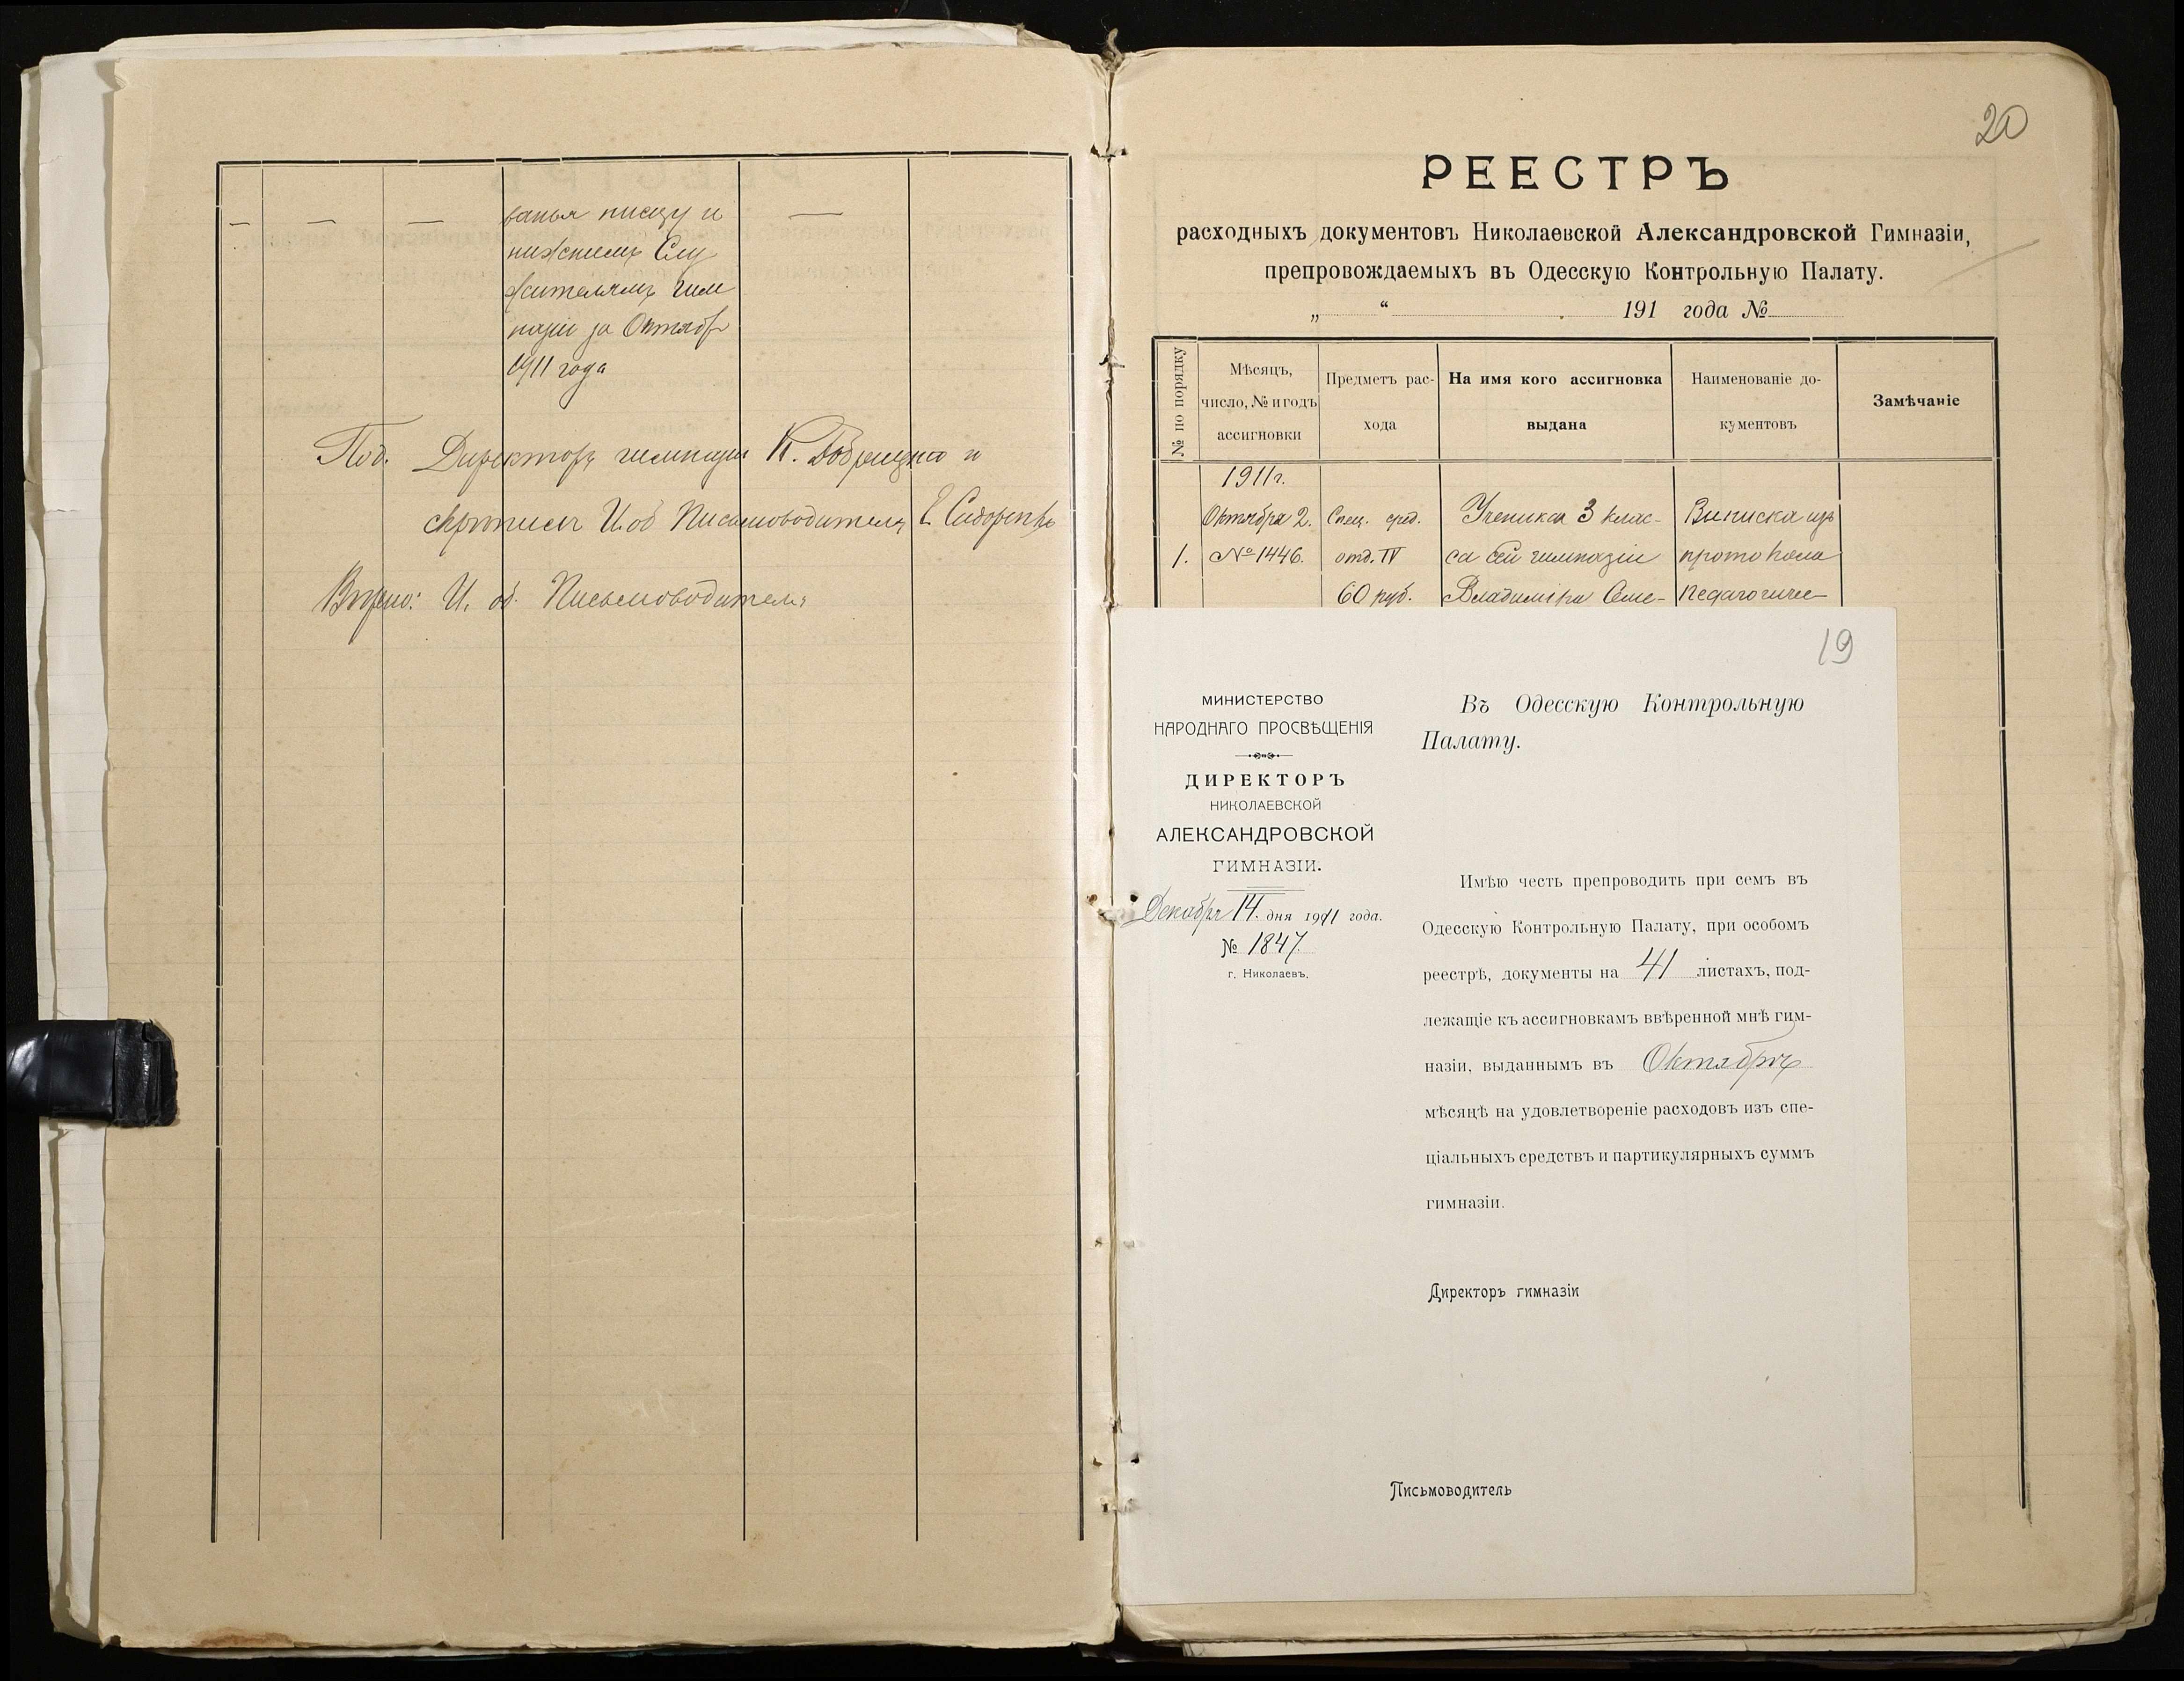 ванья писцу и
нижнимъ Слу
жителямъ гим
назіи за Октябр
1911 года
Под. Директоръ гимназіи К. и
скрѣпилъ И. об Письмоводителя Е Сидоренко
Вѣрно: И. об. Письмоводителя
20
РЕЕСТРЪ
расходныхъ документовъ Николаевской Александровской Гимназіи,
препровождаемыхъ въ Одесскую Контрольную Палату.
„ “ 191 года №
№ по порядку
Мѣсяцъ,
число, № и годъ
ассигновки
Предметъ рас-
хода
На имя кого ассигновка
выдана
Наименованіе до-
кументовъ
Замѣчаніе
1911 г.
Октября 2. Спец. сред. Ученика 3 клас- Выписка изъ
1. № 1446. отд. IV са сей гимназіи протокола
60 руб. Владиміра Семе- педагогиче-
19
МИНИСТЕРСТВО
НАРОДНАГО ПРОСВѢЩЕНІЯ
ДИРЕКТОРЪ
НИКОЛАЕВСКОЙ
АЛЕКСАНДРОВСКОЙ
ГИМНАЗІИ.
Декабря 14. дня 1911 года.
№ 1847.
г. Николаевъ.
Въ Одесскую Контрольную
Палату.
Имѣю честь препроводить при семъ въ
Одесскую Контрольную Палату, при особомъ
реестрѣ, документы на 41 листахъ, под-
лежащіе къ ассигновкамъ ввѣренной мнѣ гим-
назіи, выданнымъ въ Октябрѣ
мѣсяцѣ на удовлетвореніе расходовъ изъ спе-
ціальныхъ средствъ и партикулярныхъ суммъ
гимназіи.
Директоръ гимназіи
Письмоводитель